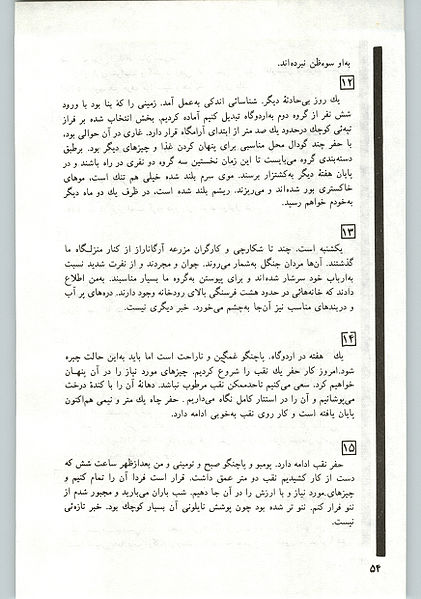 به‌او سوءظن نبرده‌اند.
۱۲
یك روز بی‌حادثهٔ دیگر. شناسائی اندکی به‌عمل آمد. زمینی را که بنا بود با ورود
شش نفر از گروه دوم به‌اردوگاه تبدیل کنیم آماده کردیم. بخش انتخاب شده بر فراز
تپه‌ئی کوچك درحدود یك صد متر از ابتدای آرامگاه قرار دارد. غاری در آن حوالی بود،
با حفر چند گودال محل مناسبی برای پنهان کردن غذا و چیزهای دیگر بود. برطبق
دسته‌بندی گروه می‌بایست تا این زمان نخستین سه گروه دو نفری در راه باشند و در
پایان هفتهٔ دیگر به‌کشتزار برسند. موی سرم بلند شده خیلی هم تنك است، موهای
خاکستری بور شده‌اند و می‌ریزند. ریشم بلند شده است، در ظرف یك دو ماه دیگر
به‌خودم خواهم رسید.
۱۳
یکشنبه است. چند تا شکارچی و کارگران مزرعه آرگاناراز از کنار منزلگاه ما
گذشتند. آن‌ها مردان جنگل به‌شمار می‌روند. جوان و مجردند و از نفرت شدید نسبت
به‌ارباب خود سرشار شده‌اند و برای پیوستن به‌گروه ما بسیار مناسبند. به‌من اطلاع
دادند که خانه‌هائی در حدود هشت فرسنگی بالای رودخانه وجود دارند. دره‌های پر آب
و دربندهای مناسب نیز آن‌جا به‌چشم می‌خورد. خبر دیگری نیست.
۱۴
یك هفته در اردوگاه. پاچنگو غمگین و ناراحت است اما باید به‌این حالت چیره
شود. امروز کار حفر یك نقب را شروع کردیم. چیزهای مورد نیاز را در آن پنهان
خواهیم کرد. سعی می‌کنیم تاحدممکن نقب مرطوب نباشد. دهانهٔ آن را با کندهٔ درخت
می‌پوشانیم و آن را در استتار کامل نگاه می‌داریم. حفر چاه یك متر و نیمی هم‌اکنون
پایان یافته است و کار روی نقب به‌خوبی ادامه دارد.
۱۵
حفر نقب ادامه دارد. پومبو و پاچنگو صبح و تومینی و من بعدازظهر ساعت شش که
دست از کار کشیدیم نقب دو متر عمق داشت. قرار است فردا آن را تمام کنیم و
چیزهای مورد نیاز و با ارزش را در آن جا دهیم. شب باران می‌بارید و مجبور شدم از
ننو فرار کنم. ننو تر شده بود چون پوشش نایلونی آن بسیار کوچك بود. خبر تازه‌ئی
نیست.
۵۴